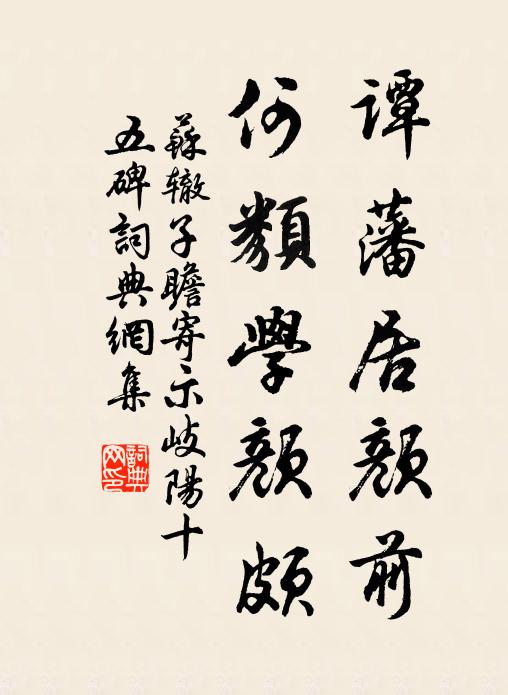 譚藩居顏前
何類學顏頗
蘇辙子瞻寄示岐陽十
五碑詞典網集
詞典網印